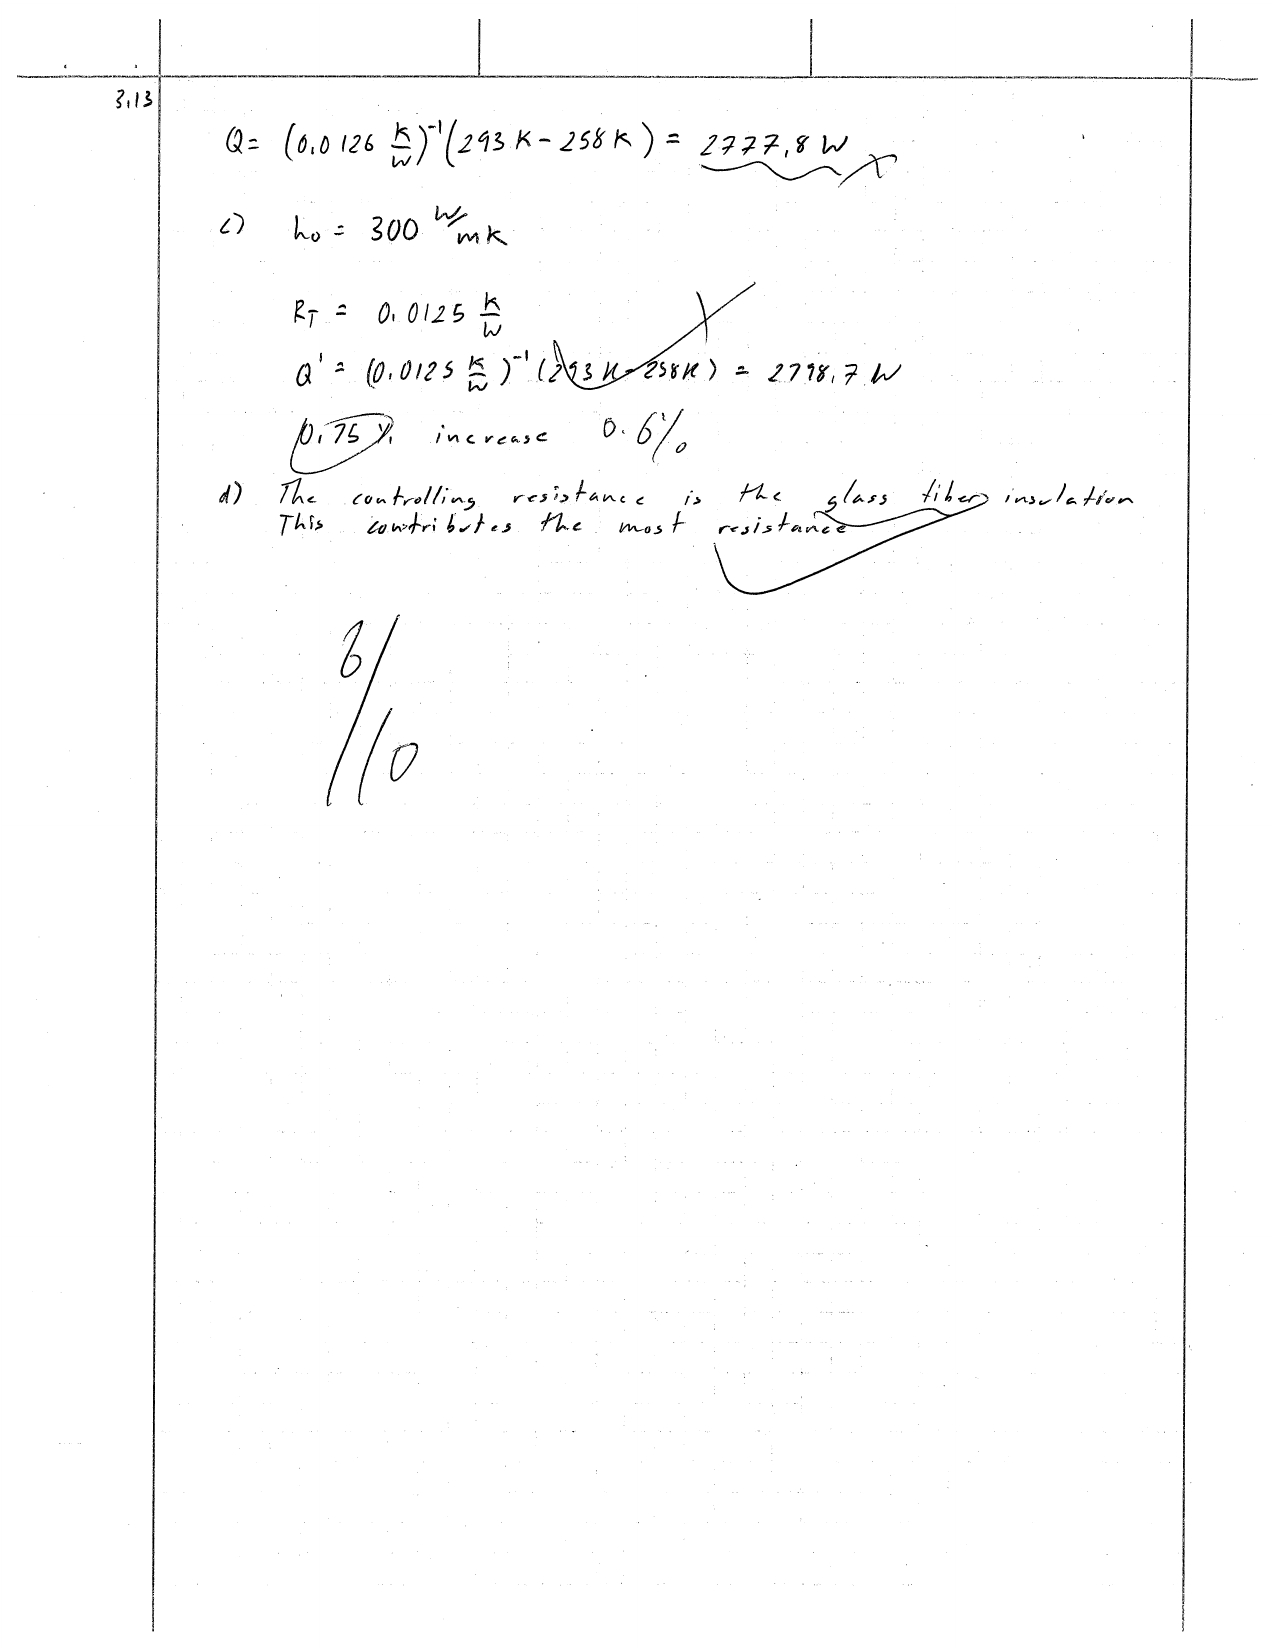 3.13
Q = (0.0126 K/W)⁻¹ (293 K - 258 K) = 2777.8 W
c) h₀ = 300 W/mK
R_T = 0.0125 K/W
Q' = (0.0125 K/W)⁻¹ (293 K - 258 K) = 2798.7 W
0.75 % increase 0.6%
d) The controlling resistance is the glass fiber insulation
This contributes the most resistance
8/10